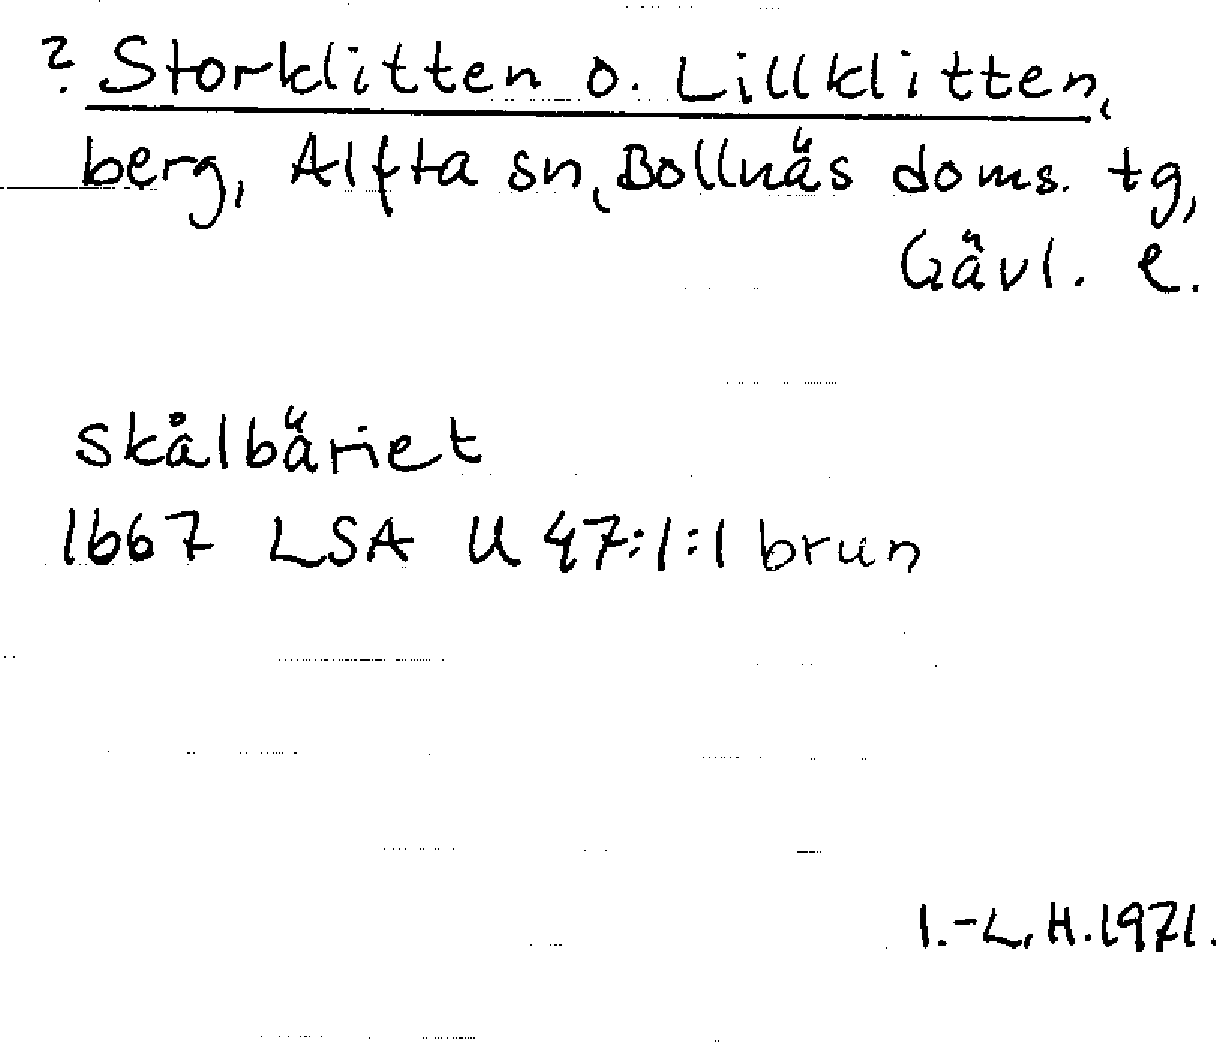 ? Storklitten o. Lillklitten,
berg, Alfta sn, Bollnäs doms. tg,
Gävl. l.
skålbäriet
1667 LSA U 47:1:1 brun
I.-L. H. 1971.